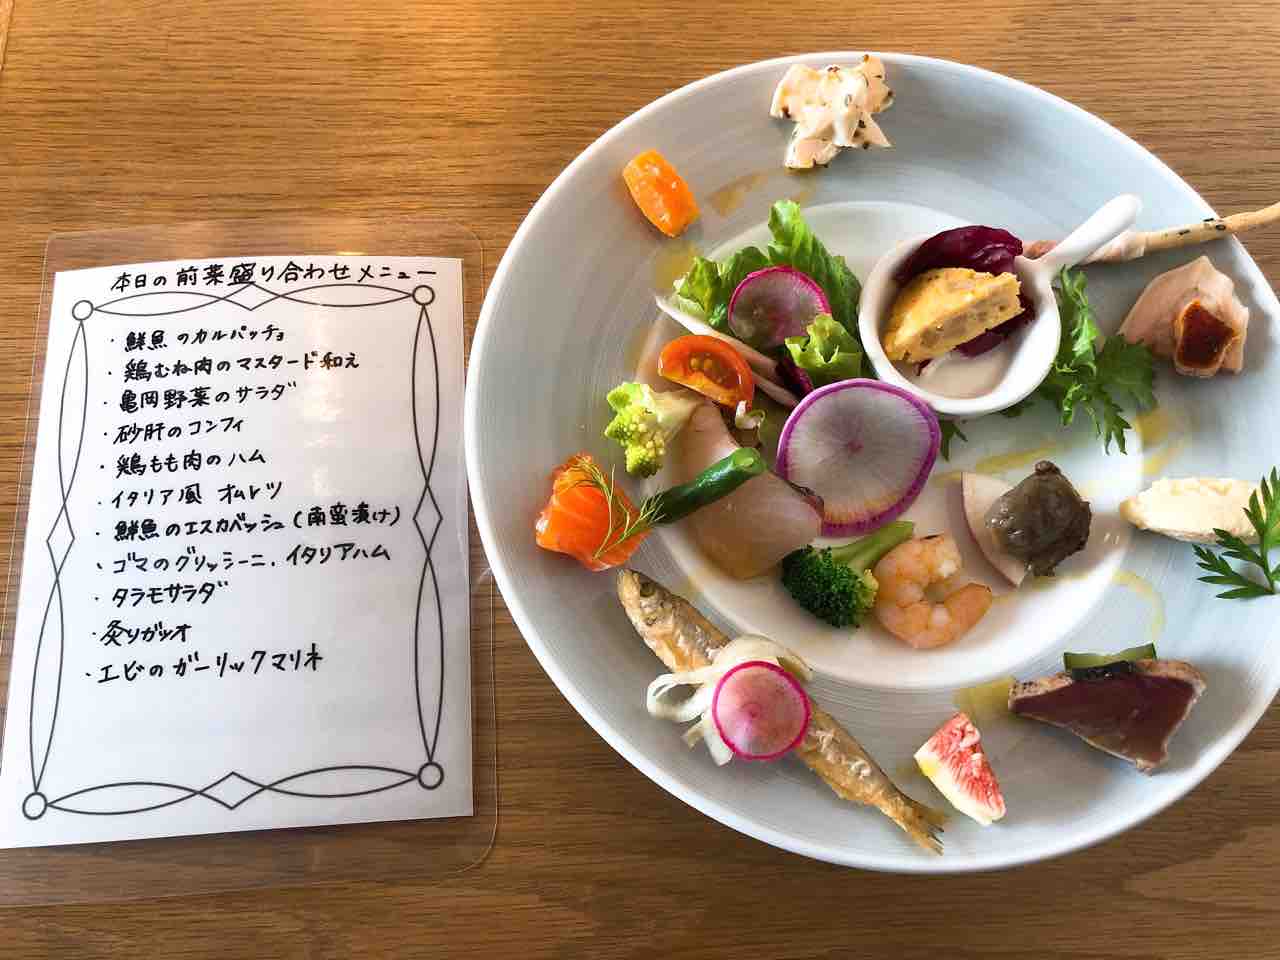 本日の前菜盛り合わせメニュー
・鮮魚のカルパッチョ
・鶏むね肉のマスタード和え
・亀岡野菜のサラダ
・砂肝のコンフィ
・鶏もも肉のハム
・イタリア風 オムレツ
・鮮魚のエスカベッシュ(南蛮漬け)
、ゴマのグリッシーニ.イタリアハム
・タラモサラダ
・炙りガツオ
・エビのガーリックマリネ